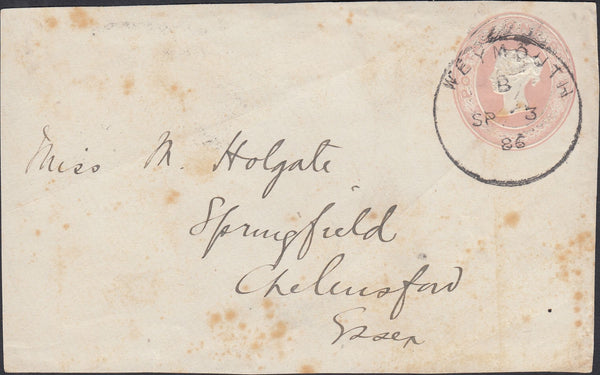 WEYMOUTH
B
SP 3
86
Miss M. Holgate
Springfield
Chelmsford
Essex